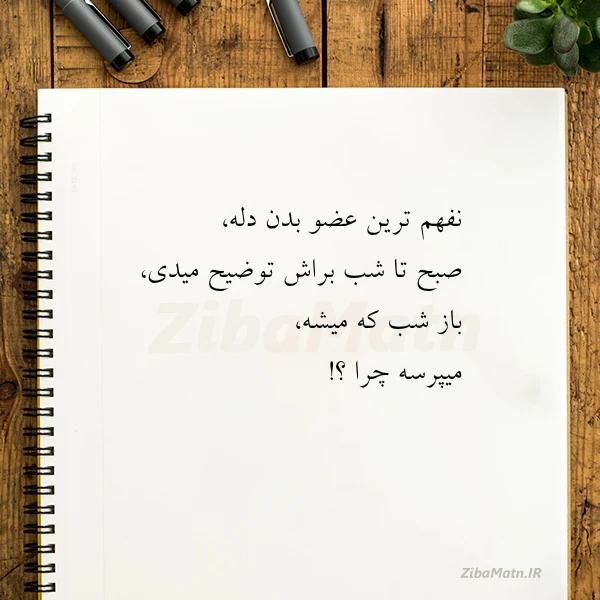 نفهم ترین عضو بدن دله،
صبح تا شب براش توضیح میدی،
باز شب که میشه،
میپرسه چرا ؟!
ZibaMatn
ZibaMatn.IR